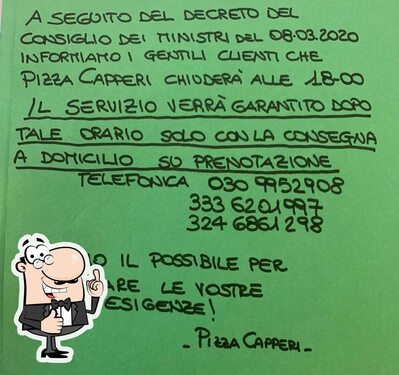 A SEGUITO DEL DECRETO DEL
CONSIGLIO DEI MINISTRI DEL 08.03.2020
INFORMIAMO I GENTILI CLIENTI CHE
PIZZA CAPPERI CHIUDERÀ ALLE 18-00
IL SERVIZIO VERRÀ GARANTITO DOPO
TALE ORARIO SOLO CON LA CONSEGNA
A DOMICILIO SU PRENOTAZIONE
TELEFONICA 030 9952908
333 6201997
324 6861298
IL POSSIBILE PER
LE VOSTRE
ESIGENZE!
- PIZZA CAPPERI -